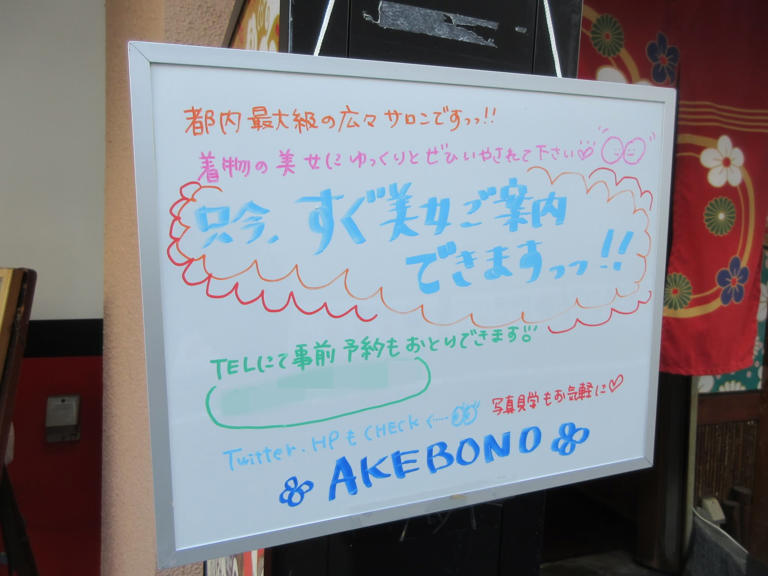 都内最大級の広々サロンですっっ!!
着物の美女にゆっくりとぜひいやされて下さい♡
只今、すぐ美女ご案内
できますっっ!!
TELにて事前予約もおとりできます!!
写真見学もお気軽に♡
Twitter.HPもCHECK
AKEBONO